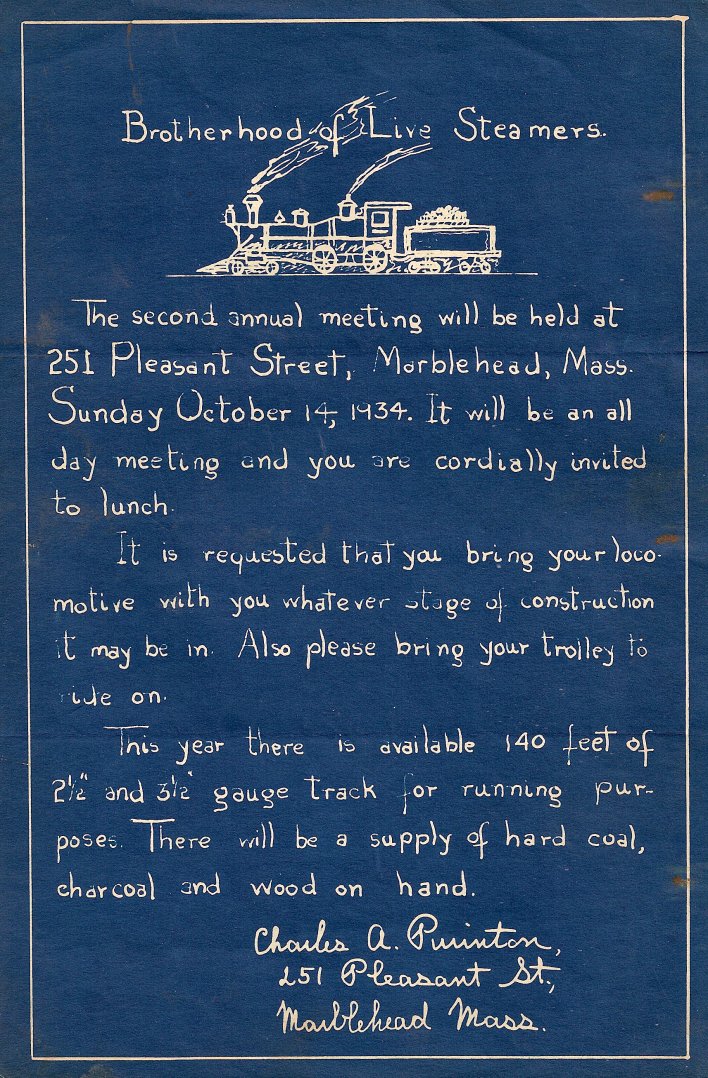 Brotherhood of Live Steamers.
The second annual meeting will be held at
251 Pleasant Street, Marblehead, Mass.
Sunday October 14, 1934. It will be an all
day meeting and you are cordially invited
to lunch.
It is requested that you bring your loco-
motive with you whatever stage of construction
it may be in. Also please bring your trolley to
ride on.
This year there is available 140 feet of
2½" and 3½" gauge track for running pur-
poses. There will be a supply of hard coal,
charcoal and wood on hand.
Charles A. Purinton,
251 Pleasant St.,
Marblehead Mass.